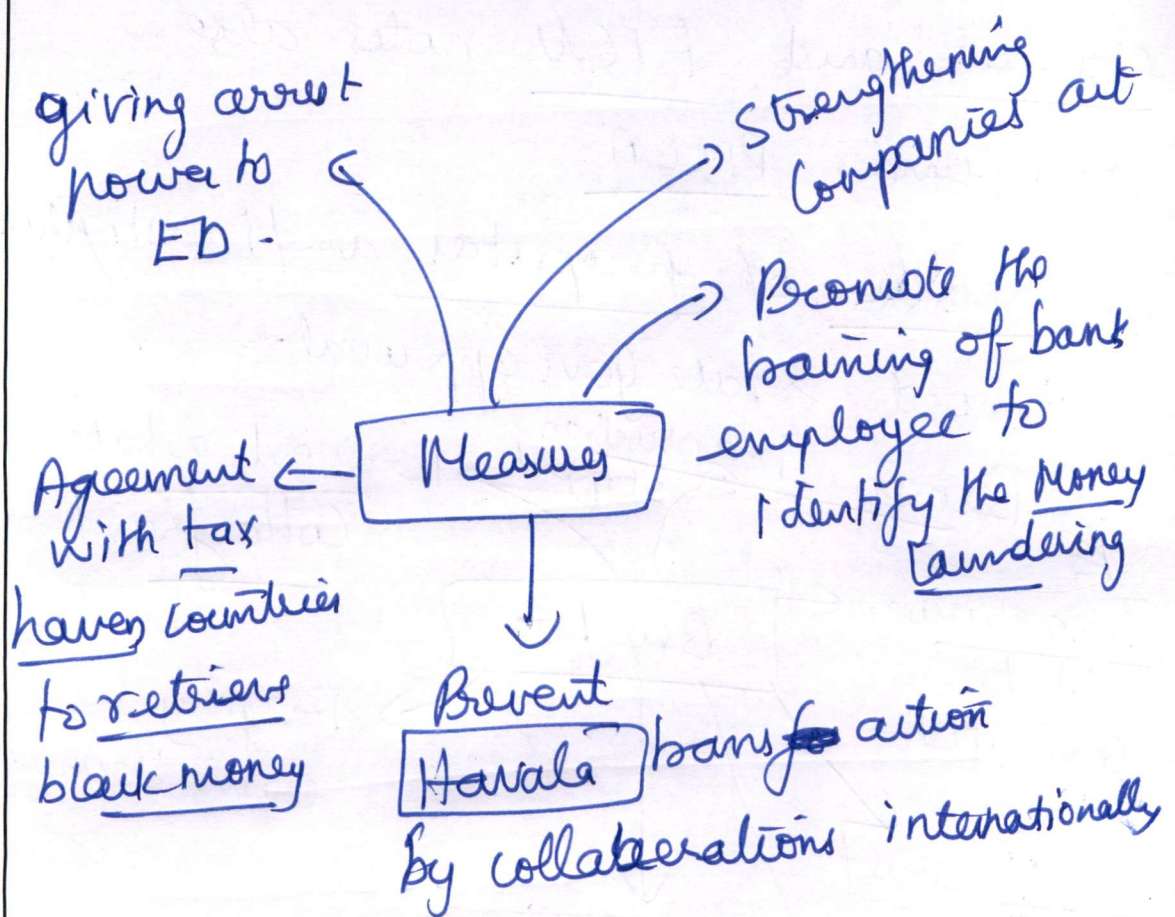 giving arrest
power to
ED -
Strengthening
Companies act
Promote the
training of bank
employee to
Identify the Money
laundering
Measures
Agreement
with tax
haven countries
to retrieve
black money
Prevent
Havala transaction
by collaborations internationally